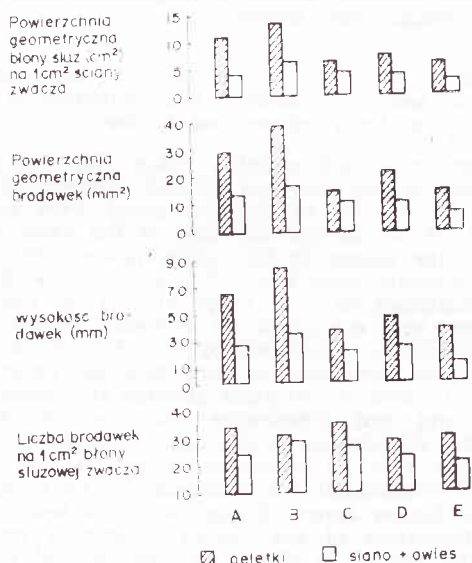 Powierzchnia
geometryczna
błony śluz (cm²)
na 1cm² ściany
zwacza
15
10
5
0
Powierzchnia
geometryczna
brodawek (mm²)
40
30
20
10
0
wysokość bro-
dawek (mm)
9.0
5.0
3.0
1.0
0
Liczba brodawek
na 1cm² błony
sluzowej zwacza
40
30
20
10
A B C D E
peletki siano + owies